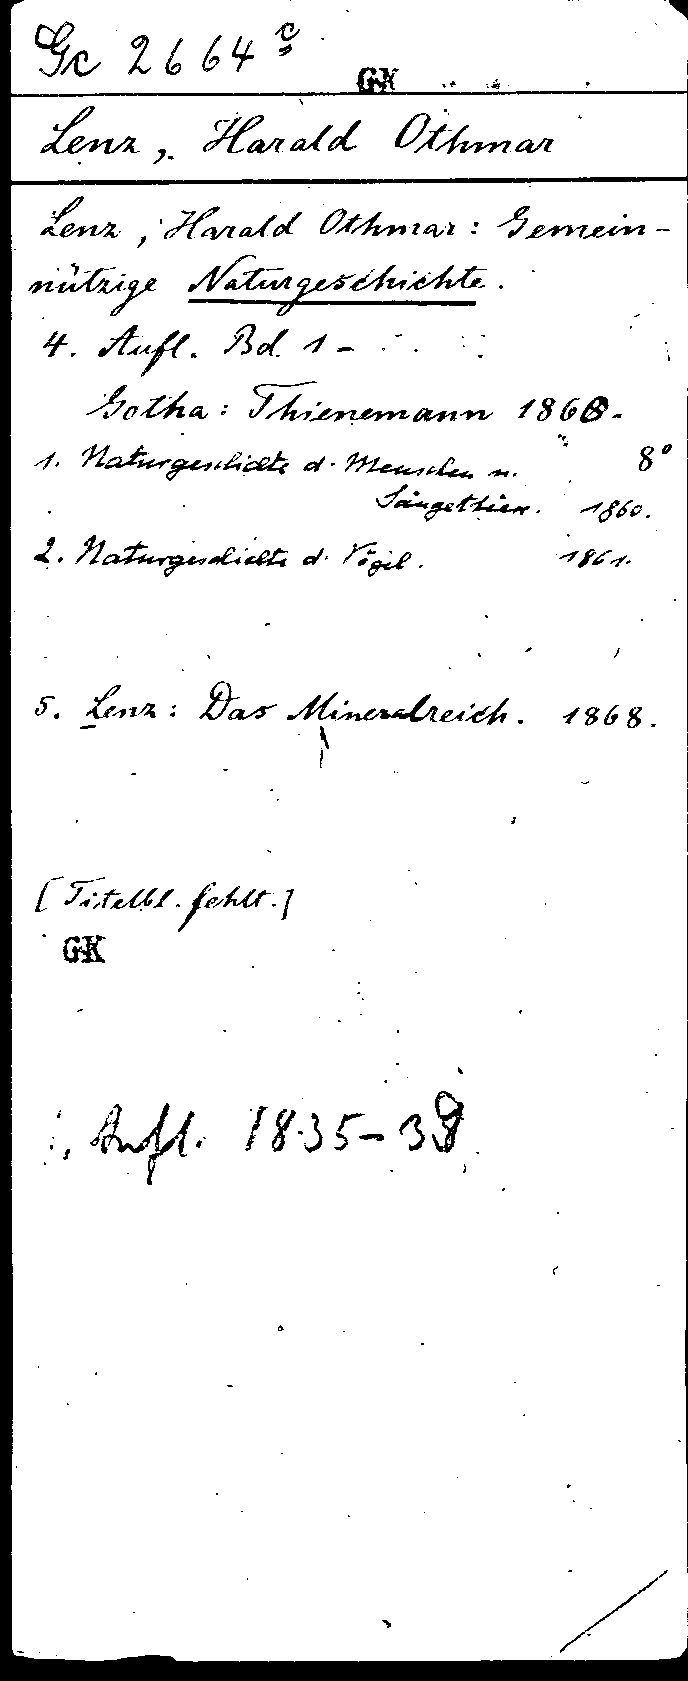 Gc 2664 c
GK
Lenz, Harald Othmar
Lenz, Harald Othmar: Gemein-
nützige Naturgeschichte.
4. Aufl. Bd. 1 -
Gotha: Thienemann 1860.
8°
1. Naturgeschichte d. Menschen u.
Säugethiere. 1860.
2. Naturgeschichte d. Vögel. 1861.
5. Lenz: Das Mineralreich. 1868.
[Titelbl. fehlt.]
GK
Aufl. 1835-39